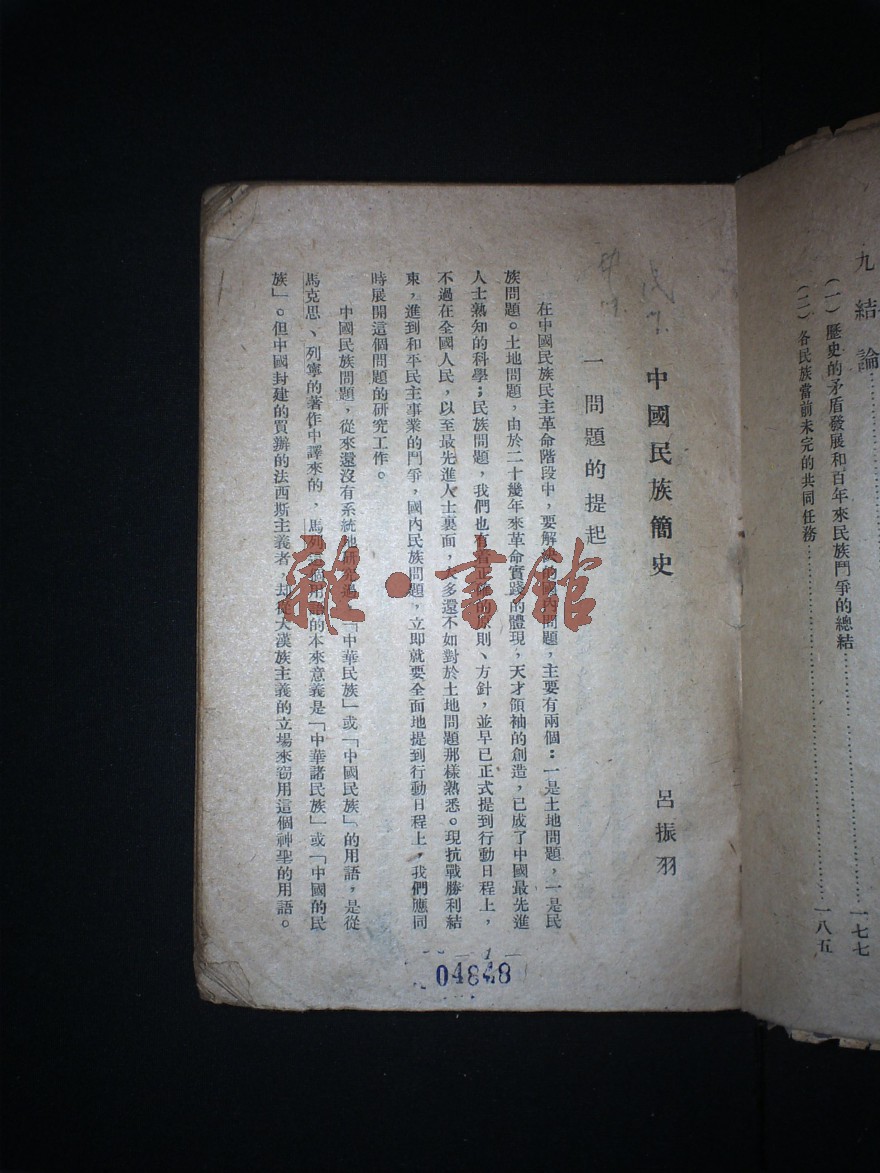 九 結論⋯⋯⋯⋯⋯⋯⋯⋯⋯⋯⋯⋯一七七
(一)歷史的矛盾發展和百年來民族鬥爭的總結⋯⋯⋯⋯⋯⋯
(二)各民族當前未完的共同任務⋯⋯⋯⋯⋯⋯⋯⋯一八五
中國民族簡史
呂振羽
一 問題的提起
在中國民族民主革命階段中,要解決的國內問題,主要有兩個:一是土地問題,一是民
族問題。土地問題,由於二十幾年來革命實踐的體現,天才領袖的創造,已成了中國最先進
人士熟知的科學;民族問題,我們也有着正確的原則、方針,並早已正式提到行動日程上,
不過在全國人民,以至最先進人士裏面,大多還不如對於土地問題那樣熟悉。現抗戰勝利結
束,進到和平民主事業的鬥爭,國內民族問題,立即就要全面地提到行動日程上,我們應同
時展開這個問題的研究工作。
中國民族問題,從來還沒有系統地研究過。「中華民族」或「中國民族」的用語,是從
馬克思、列寧的著作中譯來的,馬列這個用語的本來意義是「中華諸民族」或「中國的民
族」。但中國封建的買辦的法西斯主義者,却從大漢族主義的立場來窃用這個神聖的用語。
1
04848
雜·書館